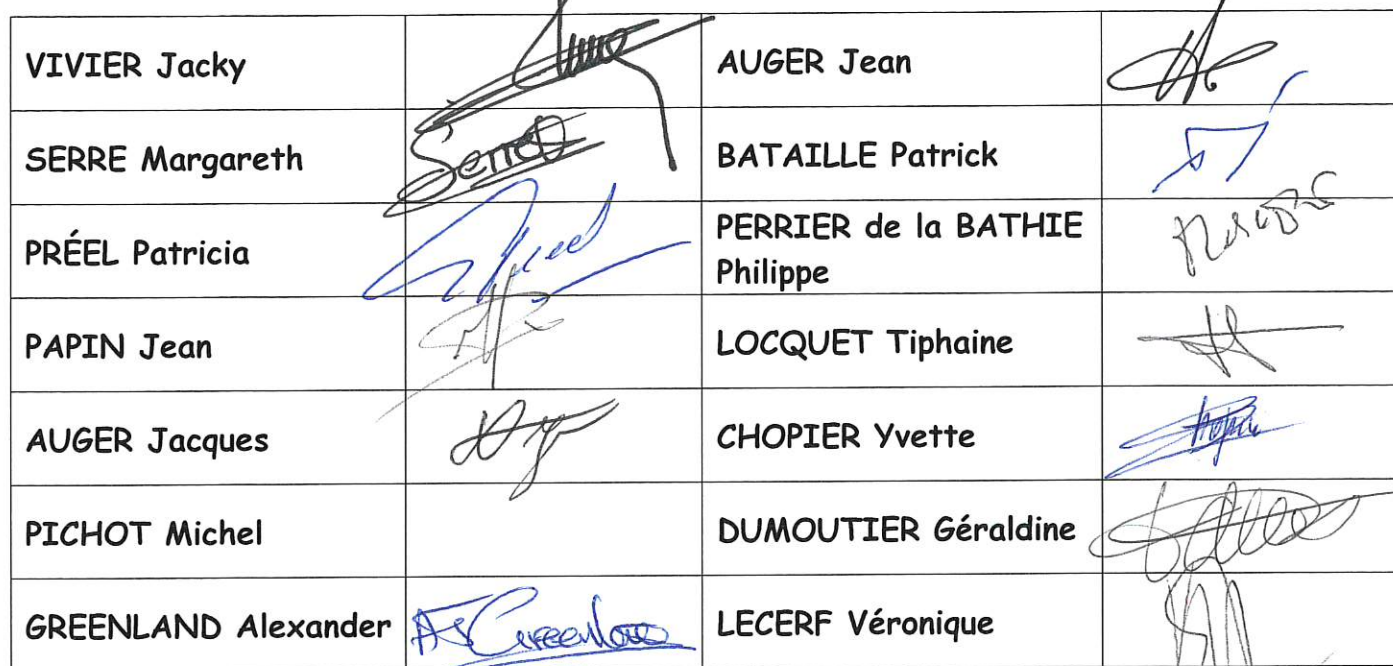 VIVIER Jacky
AUGER Jean
SERRE Margareth
Serre
BATAILLE Patrick
PRÉEL Patricia
Préel
PERRIER de la BATHIE
Philippe
PAPIN Jean
LOCQUET Tiphaine
AUGER Jacques
CHOPIER Yvette
PICHOT Michel
DUMOUTIER Géraldine
GREENLAND Alexander
AJGreenland
LECERF Véronique